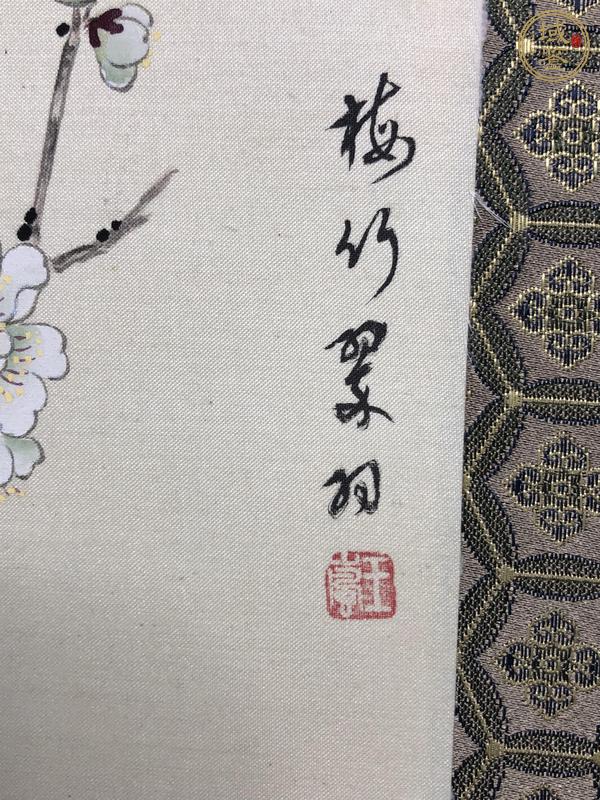 梅竹翠羽